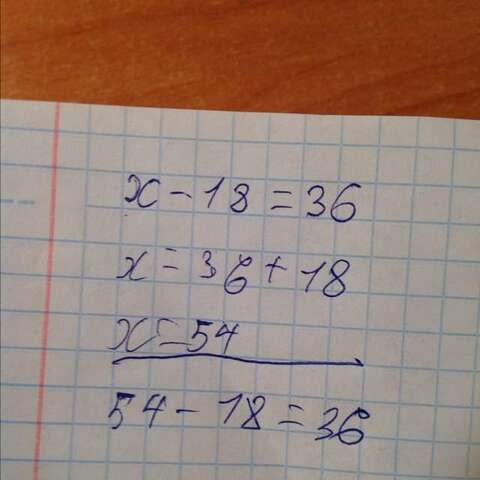 x - 18 = 36
x = 36 + 18
x = 54
54 - 18 = 36